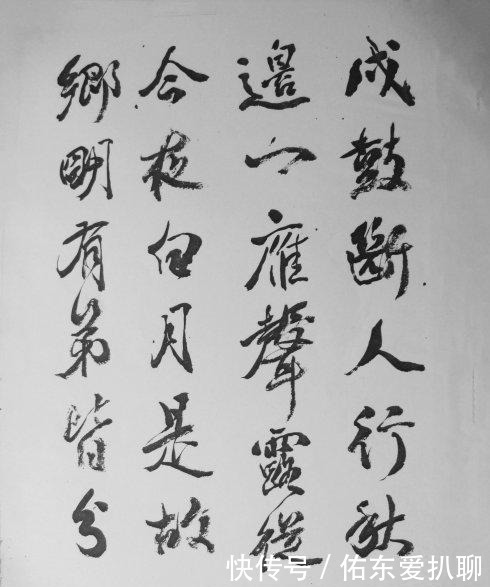 戍鼓斷人行秋
邊一雁聲露從
今夜白月是故
鄉明有弟皆分
快传号 / 佑东爱扒聊